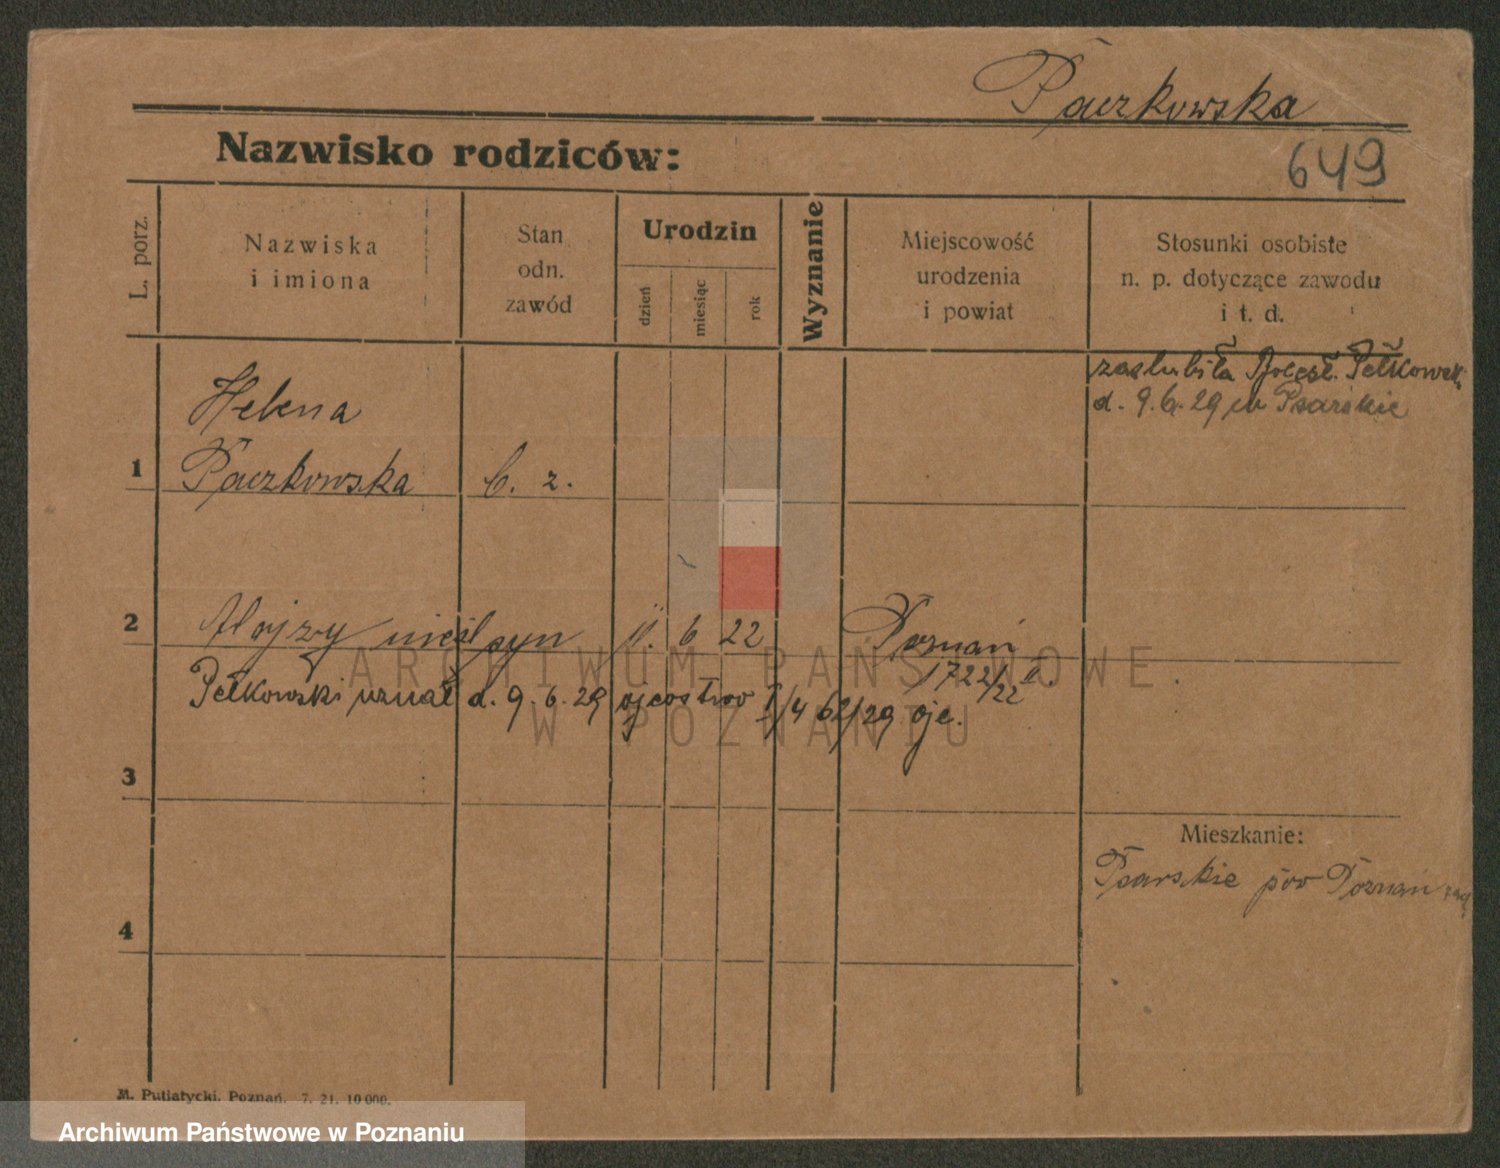 Paczkowska
Nazwisko rodziców:
649
L. porz.
Nazwiska
i imiona
Stan
odn.
zawód
Urodzin
dzień
miesiąc
rok
Wyznanie
Miejscowość
urodzenia
i powiat
Stosunki osobiste
n. p. dotyczące zawodu
i t. d.
zaślubiła Bolesł. Pełkowsk.
d. 9.6.29 w Psarskie
Helena
1 Paczkowska b. z.
2 Alojzy nieśl syn 11. 6 22 Poznań
1722/22 II.
Pełkowski uznał d. 9.6.29 ojcostwo I/4 62/29 ojc.
3
Mieszkanie:
Psarskie pow Poznań
4
M. Putiatycki, Poznań. 7. 21. 10 000.
ARCHIWUM PAŃSTWOWE
W POZNANIU
Archiwum Państwowe w Poznaniu